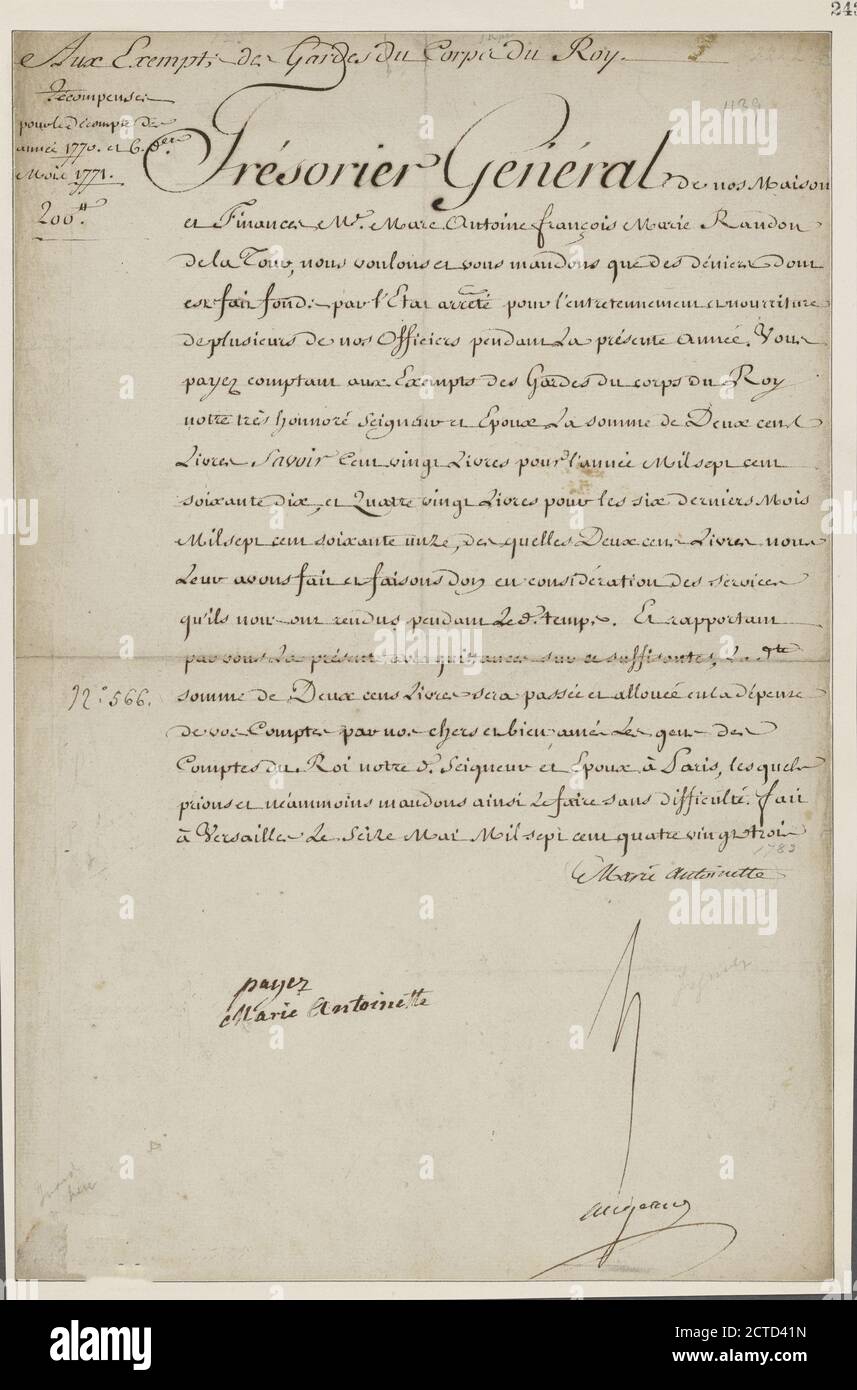 243
Aux Exempts des Gardes du Corps du Roy.
Récompenses
pour le décompte des
année 1770. et 6. ders
Mois 1771.
200#
Trésorier Général de nos Maison
et Finances Mr. Marc Antoine françois Marie Randon
de la Tour, nous voulons et vous mandons que des déniers dont
est fait fonds par l'Etat arrêté pour l'entretennement et nourriture
de plusieurs de nos Officiers pendant La présente Année. Vous
payez comptant aux Exempts des Gardes du corps du Roy
notre très honnoré Seigneur et Epoux La somme de Deux cent
Livres Savoir Cent vingt Livres pour l'année Mil sept cent
soixante dix, et Quatre vingt Livres pour les six derniers Mois
Mil sept cent soixante unze, des quelles Deux cens Livres nous
Leur avons fait et faisons don en considération des services
qu'ils nous ont rendus pendant Le d. temps. Et rapportant
par vous La présente avec quittances sur ce suffisantes, La dte
N.° 566.
somme de Deux cens Livres sera passée et allouée en la dépense
de vos Comptes par nos chers et bien amés Les gens des
Comptes du Roi notre d. Seigneur et Epoux à Paris, les quels
prions et néammoins mandons ainsi Le faire sans difficulté. fait
à Versailles Le Seize Mai Mil sept cent quatre vingt trois
1783
Marie Antoinette
payez
Marie Antoinette
augeard
alamy
Image ID: 2CTD41N
www.alamy.com